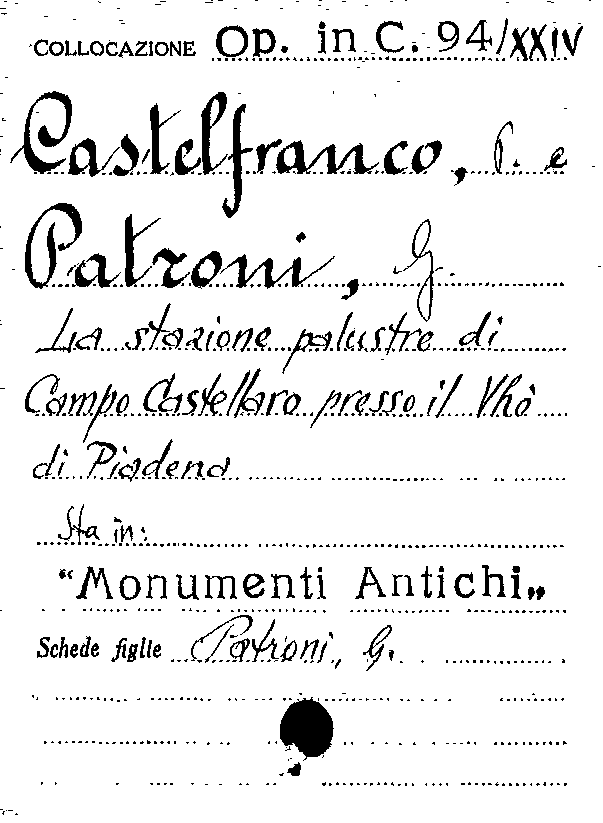 COLLOCAZIONE Op. in C. 94/XXIV
Castelfranco, P. e
Patroni, G.
La stazione palustre di
Campo Castellaro presso il Vhò
di Piadena
Sta in:
"Monumenti Antichi„
Schede figlie Patroni, G.